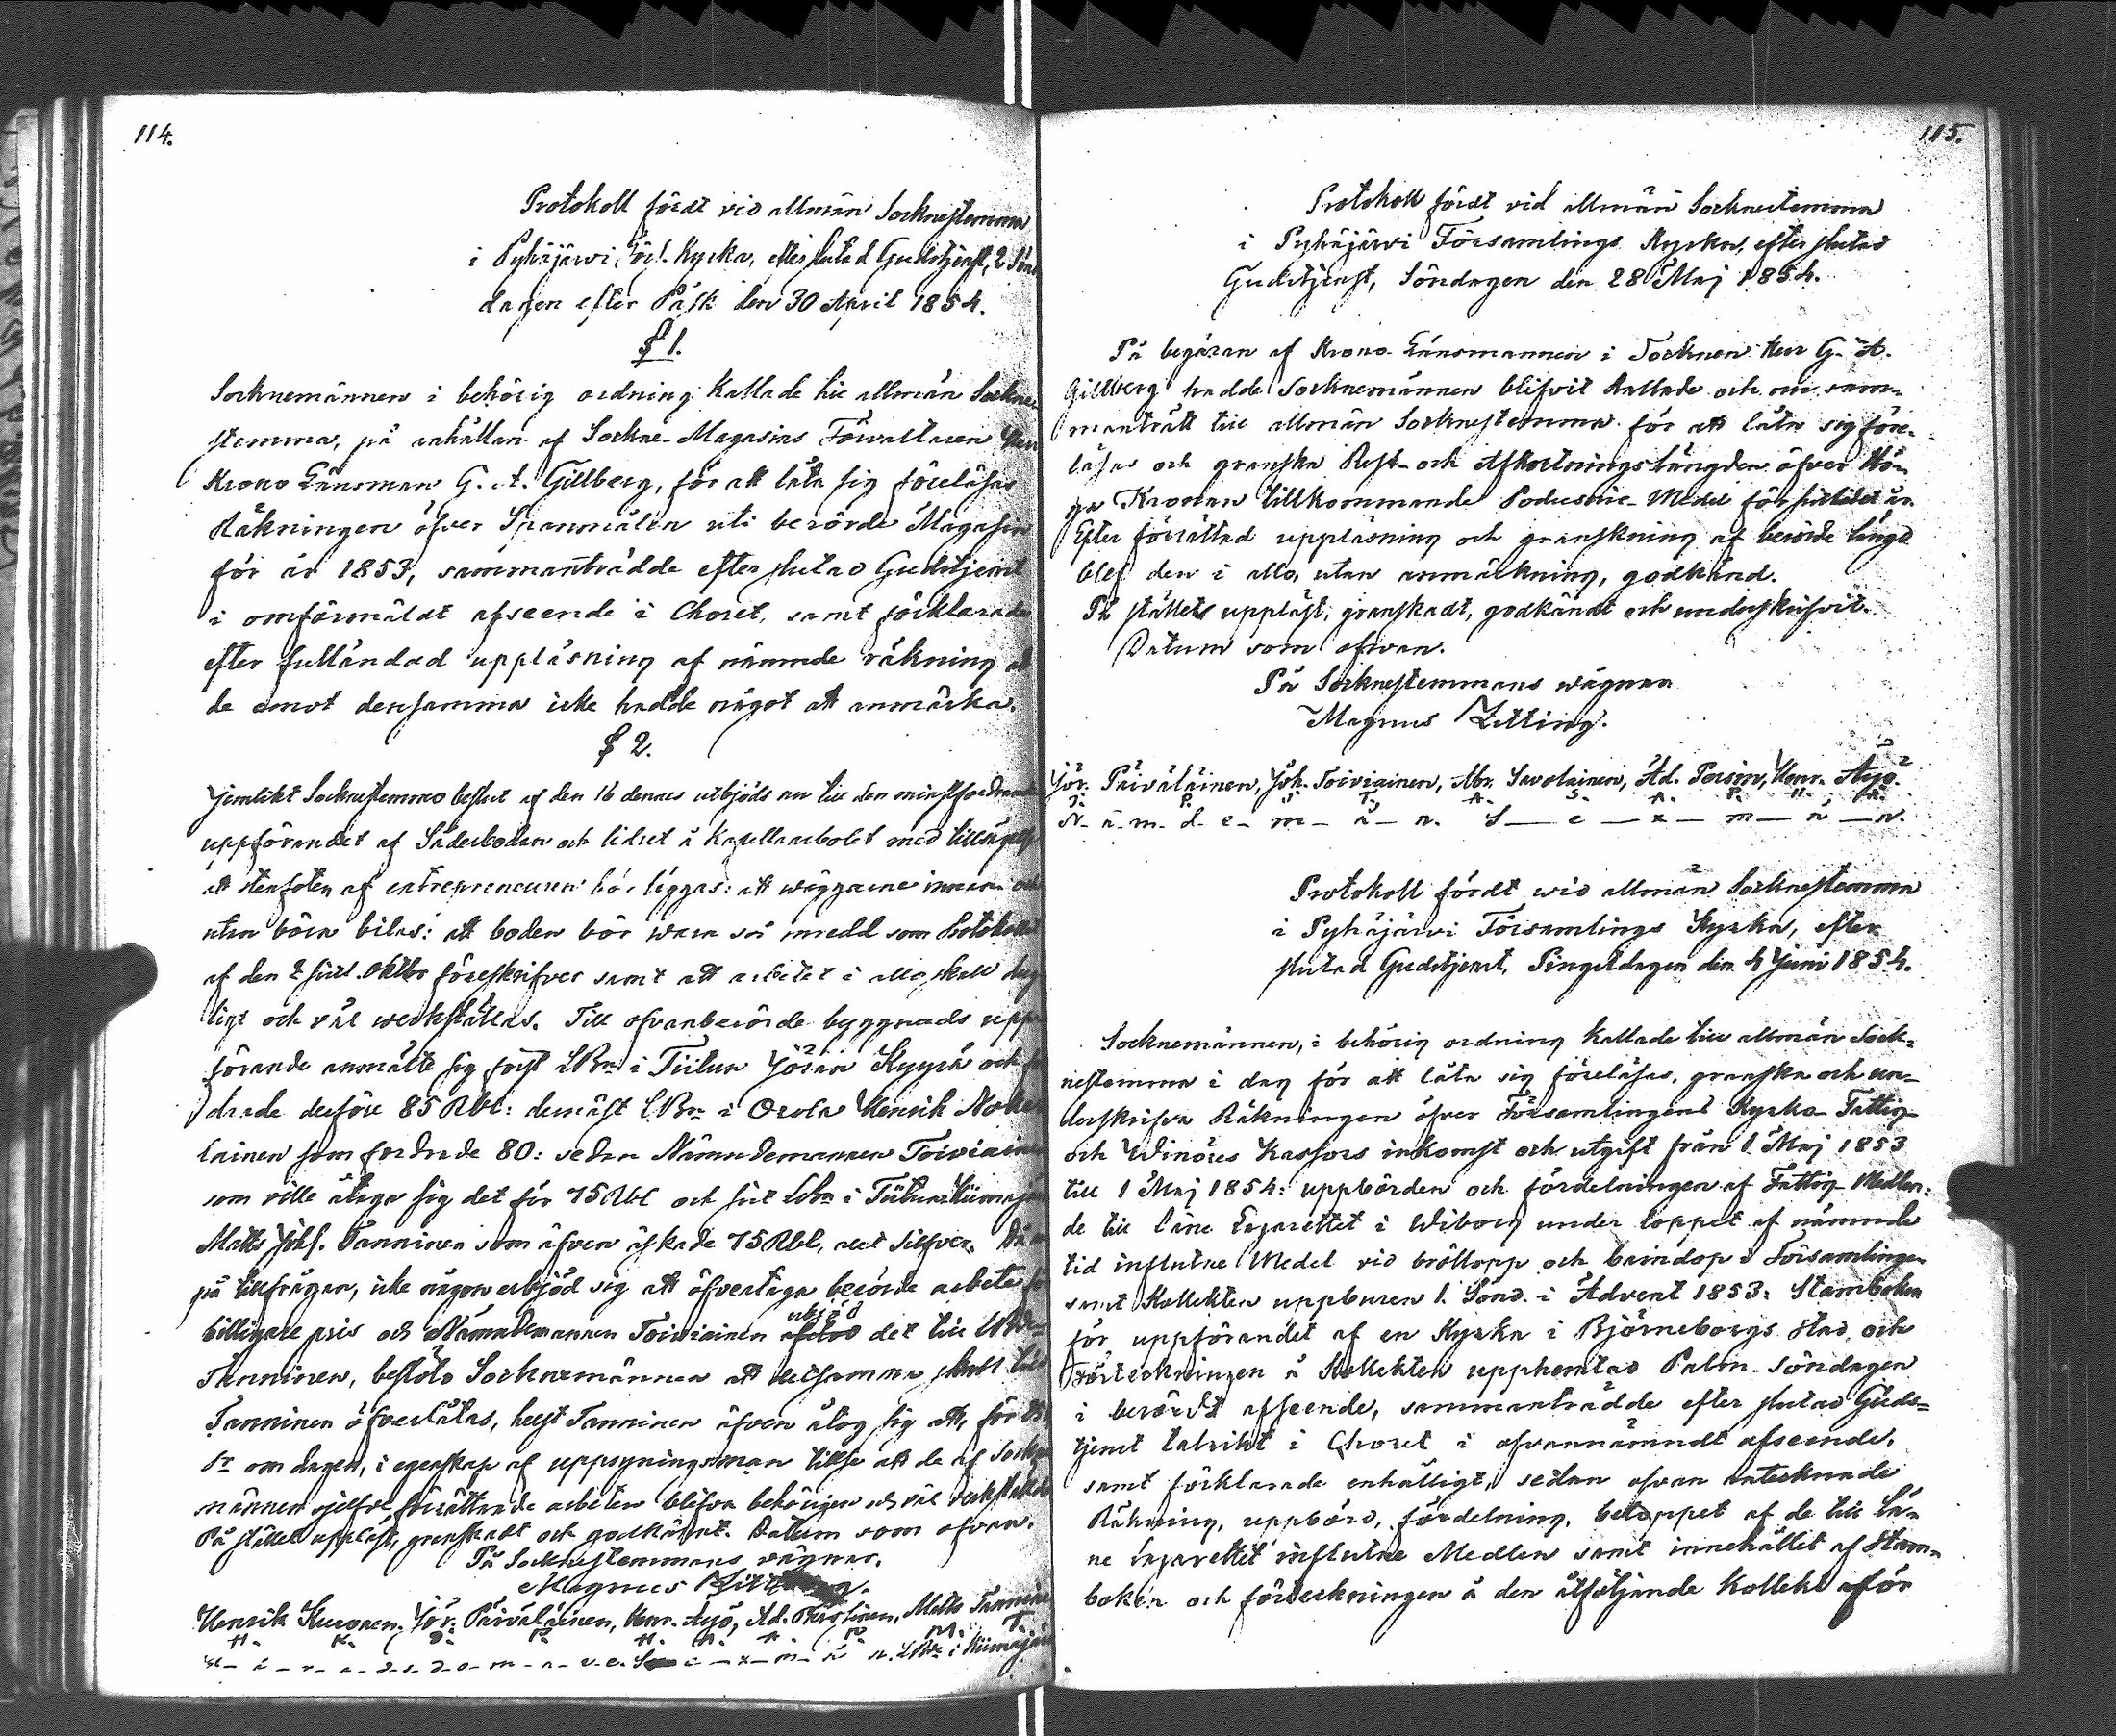 114.
Protokoll fördt vid allmän Socknestemma
i Pyhäjärvi Förs. Kyrka, efter slutad Gudstjenst, 2 Sön
dagen efter Påsk den 30 April 1854.
§ 1.
Socknemännen i behörig ordning kallade till allmän Sockne
stemma, på anhållan af Sockne-Magasins Förvaltaren Herr
Krono Länsman G. A. Gillberg, för att låta sig föreläsas
Räkningen öfver Spanmålen uti berörde Magasin
för år 1853, sammanträdde efter slutad Gudstjenst
i omförmäldt afseende i Choret, samt förklarade
efter fulländad uppläsning af nämnde räkning att
de emot densamma icke hade något att anmärka.
§ 2.
Jemlikt Socknestemmo beslut af den 16 dennes utbjöds nu till den minstfordrande
uppförandet af Sädesboden och lidret å Kapellansbolet med tillägg
att stenfoten af entrepreneuren bör läggas: att wäggarne innan och
utan böra bilas: att boden bör wara så inredd som Protokollet
af den 2 sistl. Oktbr föreskrifver samt att arbetet i allo skall dug
ligt och väl werkställas. Till ofvanberörde byggnads upp
förande anmälte sig först LBn i Tiitua Jöran Kyyrä och for
drade derföre 85 Rbl: dernäst LBn i Orola Henrik Noke
lainen som fordrade 80: sedan Nämndemannen Toiviainen
som ville åtaga sig det för 75 Rbl och sist LBn i Tiitua Kiimajär
Matts Johs. Tanninen som äfven äskade 75 Rbl, allt Silfver. Då nu
på tillfrågan, icke någon erbjöd sig att öfvertaga berörde arbete för
billigare pris och Nämndemannen Toiviainen afstod det till LBn
utbjöd
Tanninen, beslöto Socknemännen att detsamma skall till
Tanninen öfverlåtas, helst Tanninen äfven åtog sig att, för
Sr om dagen, i egenskap af uppsyningsman tillse att de af Sockne
männen sjelfve förrättande arbeten blifva behörigen och väl verkställde
På stället uppläst, granskadt och godkändt. Datum som ofvan.
På Socknestemmans vägnar,
Magnus Zitting.
Henrik Kuronen, Jör. Päiväläinen, Henr. Äyö, Ad. Persinen, Matts Tanninen
H. K. J. P. H. Ä. A. P. M. T.
H - ä - r - a - d - s - d - o - m - a - r - e. S - e - x - m - ä - n. LBn i Kiimajär
115.
Protokoll fördt vid allmän Socknestemma
i Pyhäjärvi Församlings Kyrka, efter slutad
Gudstjenst, Söndagen den 28 Maj 1854.
På begäran af Krono Länsmannen i Socknen Herr G. A.
Gillberg hade Socknemännen blifvit kallade och nu sam-
manträdt till allmän Socknestemma för att låta sig före-
läsas och granska Rest- och Afkortningslängden öfver Hö-
ga Kronan tillkommande Poduschne-Medel för sistlidet år.
Efter förrättad uppläsning och granskning af berörde längd
blef den i allo, utan anmärkning, godkänd.
På stället uppläst, granskadt, godkändt och underskrifvit.
Datum som ofvan.
På Socknestemmans wägnar
Magnus Zitting.
Jör. Päiväläinen, Joh. Toiviainen, Abr. Savolainen, Ad. Persin, Henr. Äyö.
J. P. J. T. A. S. A. P. H. Ä.
N - ä - m - d - e - m - ä - n. S - e - x - m - ä - n.
Protokoll fördt wid allmän Socknestemma
i Pyhäjärvi Församlings Kyrka, efter
slutad Gudstjenst, Pingstdagen den 4 Juni 1854.
Socknemännen, i behörig ordning kallade till allmän Sock-
nestemma i dag för att låta sig föreläsas, granska och un-
derskrifva Räkningen öfver Församlingens Kyrko- Fattig-
och Winöres Kassors inkomst och utgift från 1 Maj 1853
till 1 Maj 1854: uppbörden och fördelningen af Fattig-Medlen:
de till Läne Lazarettet i Wiborg under loppet af nämnde
tid influtne Medel vid bröllopp och barndop i Församlingen
samt Kollekten uppburen 1. Sönd. i Advent 1853: Stamboken
för uppförandet af en Kyrka i Björneborgs Stad och
Förteckningen å Kollekten upphemtad Palm-Söndagen
i berördt afseende, sammanträdde efter slutad Guds-
tjenst talrikt i Choret i ofvannämndt afseende,
samt förklarade enhälligt, sedan ofvan antecknade
Räkning, uppbörd, fördelning, beloppet af de till Lä-
ne Lazarettet influtne Medlen samt innehållet af Stam-
boken och förteckningen å den åtföljande Kollekt afför